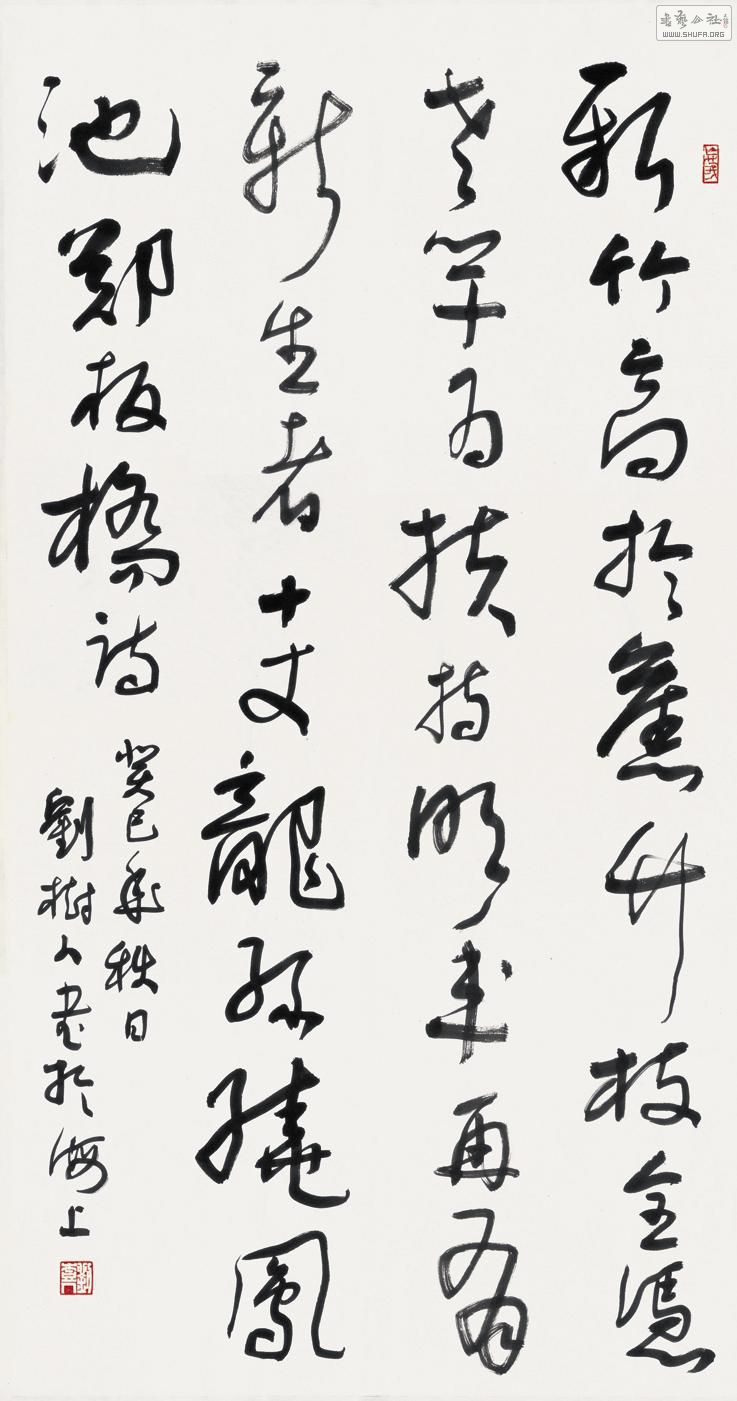 新竹高於舊竹枝全憑
老竿為扶持明年再有
新生者十丈龍孫繞鳳
池鄭板橋詩
癸巳年秋日
劉樹人書於海上
書藝公社
WWW.SHUFA.ORG